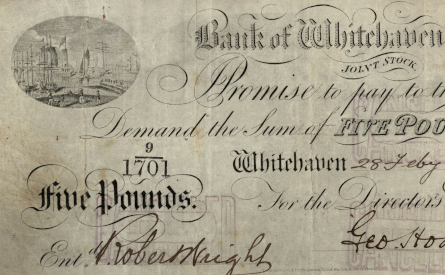 Bank of Whitehaven
JOINT STOCK
Promise to pay to
Demand the Sum of FIVE POU
9
1701
Whitehaven 28 Feby
Five Pounds.
For the Directors
Geo. Hod
Entd Robert Wright